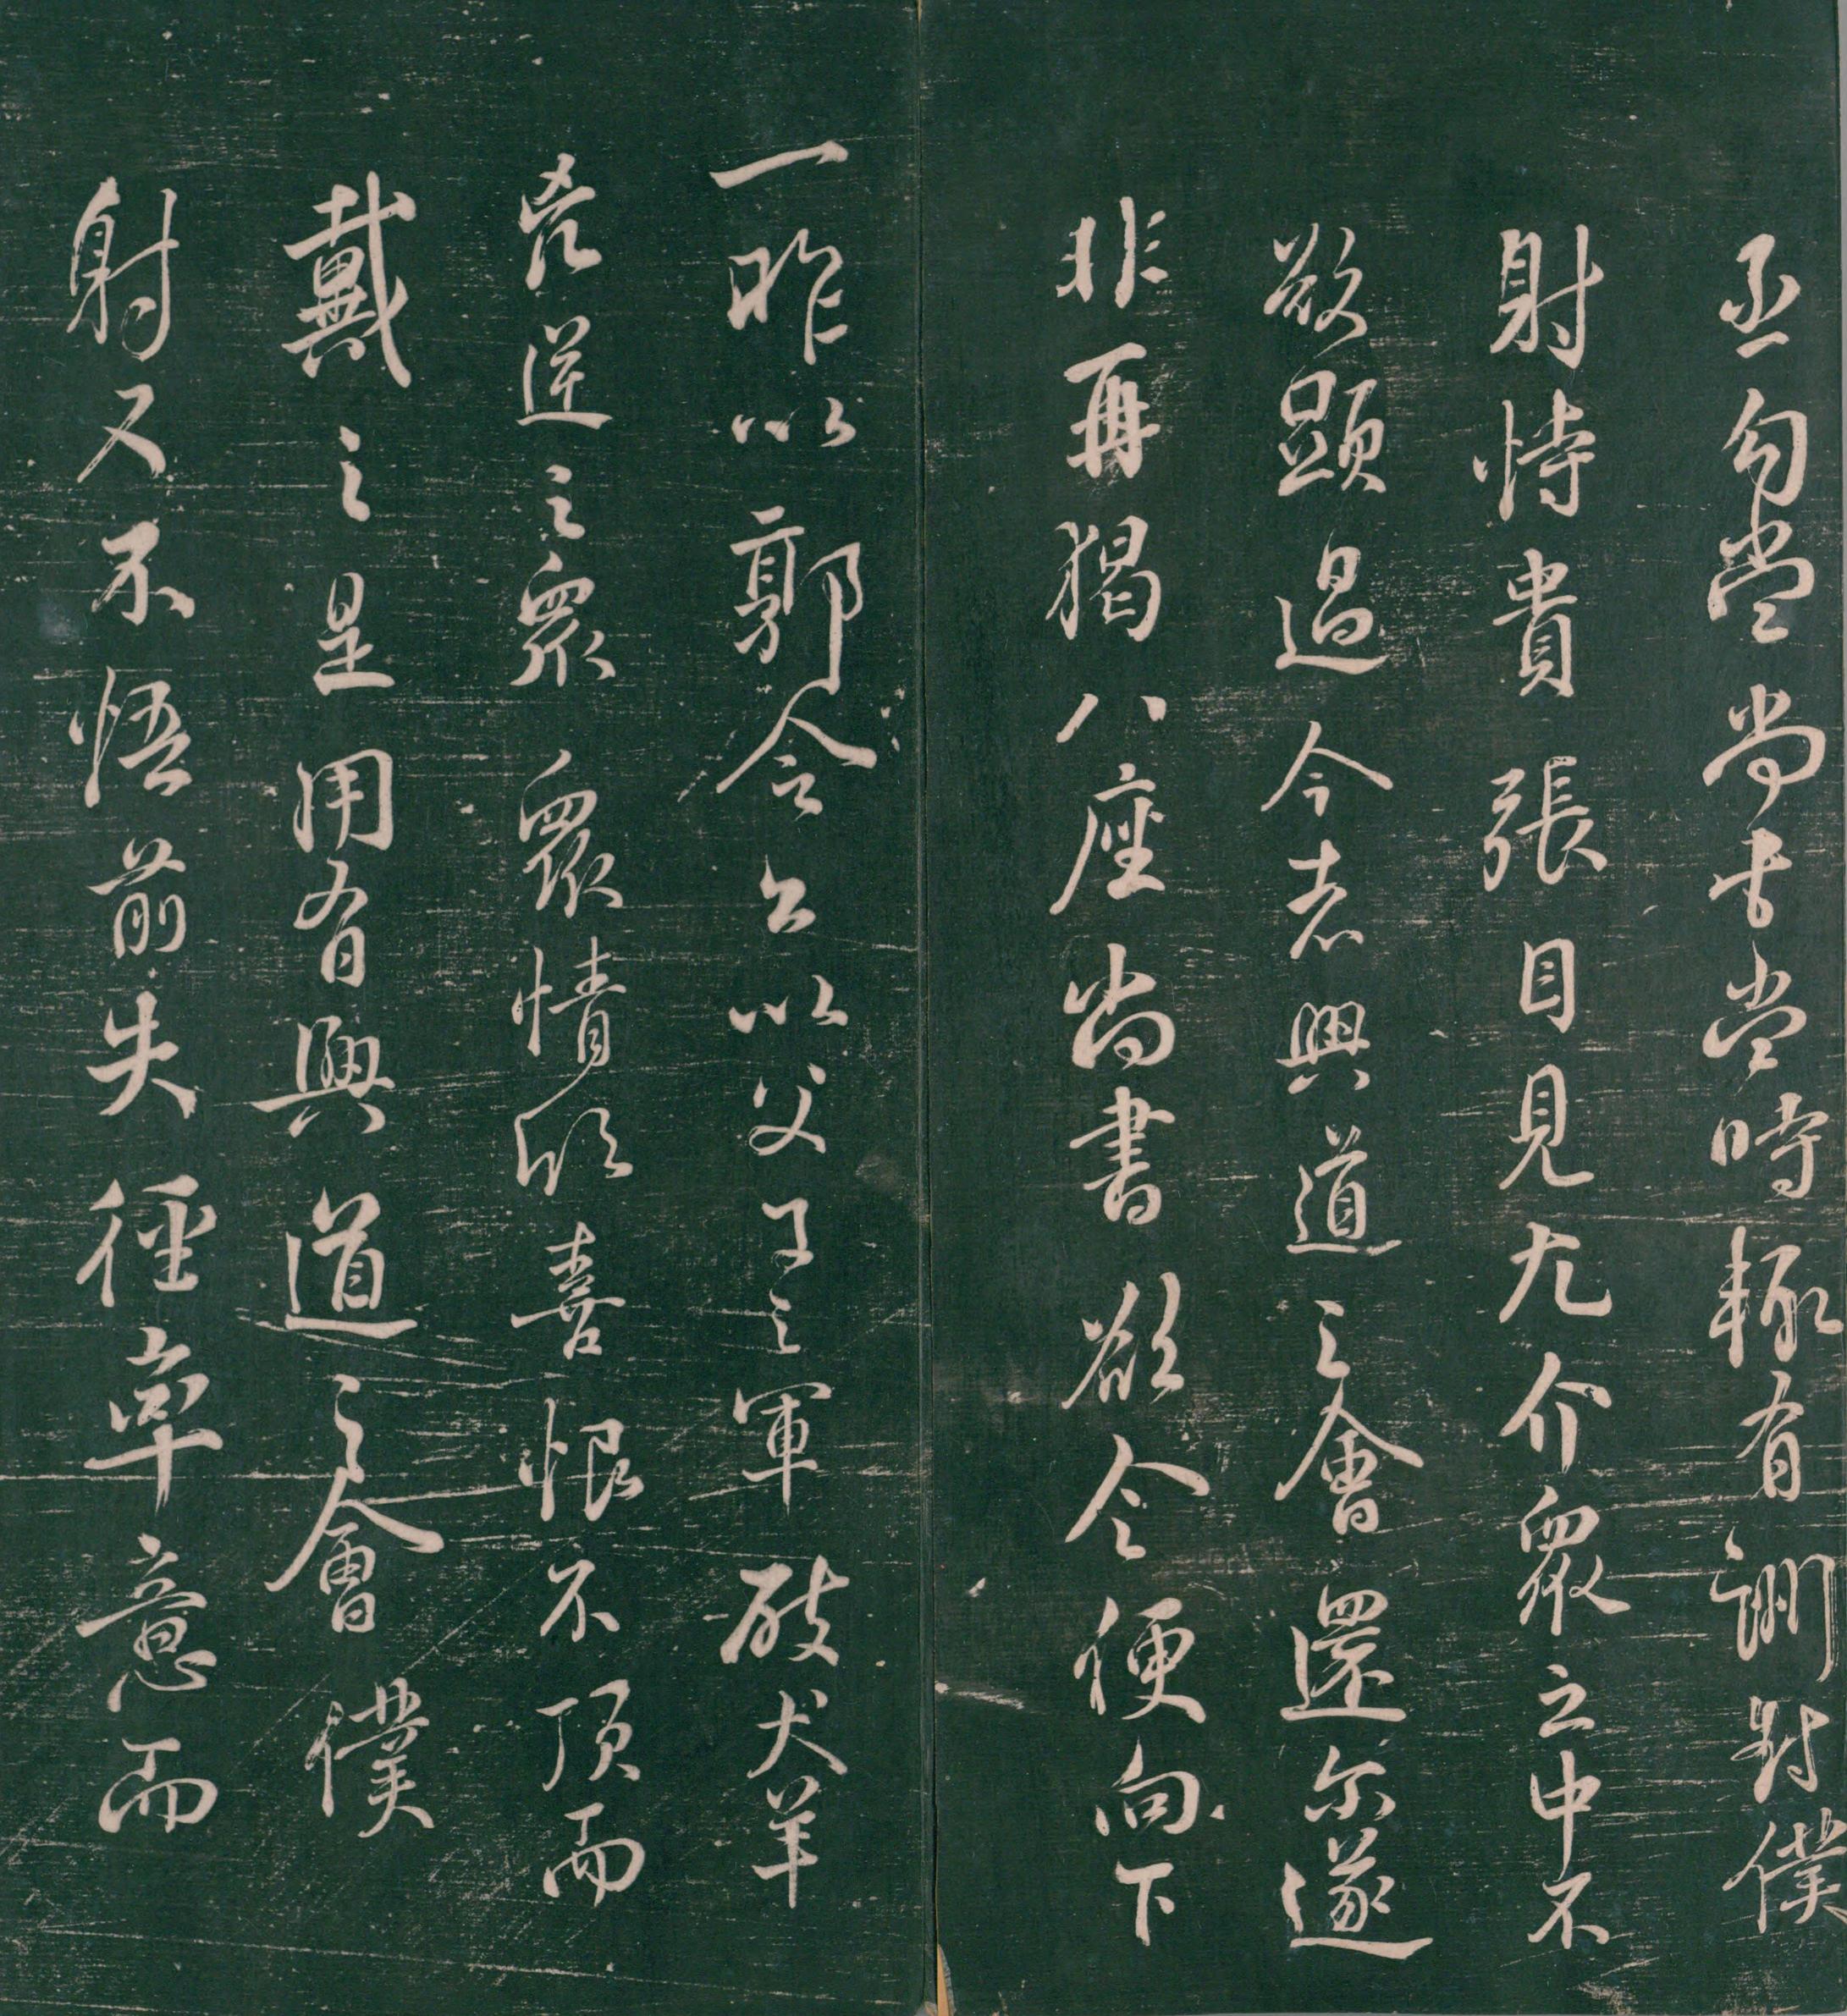 丞勾當尚書當時輒有詶對僕
射恃貴張目見尤介眾之中不
欲顯過今者興道之會還尔遂
非再猲八座尚書欲令便向下
一昨以郭令公以父子之軍破犬羊
兇逆之眾眾情欣喜恨不頂而
戴之是用有興道之會僕
射又不悟前失徑率意而